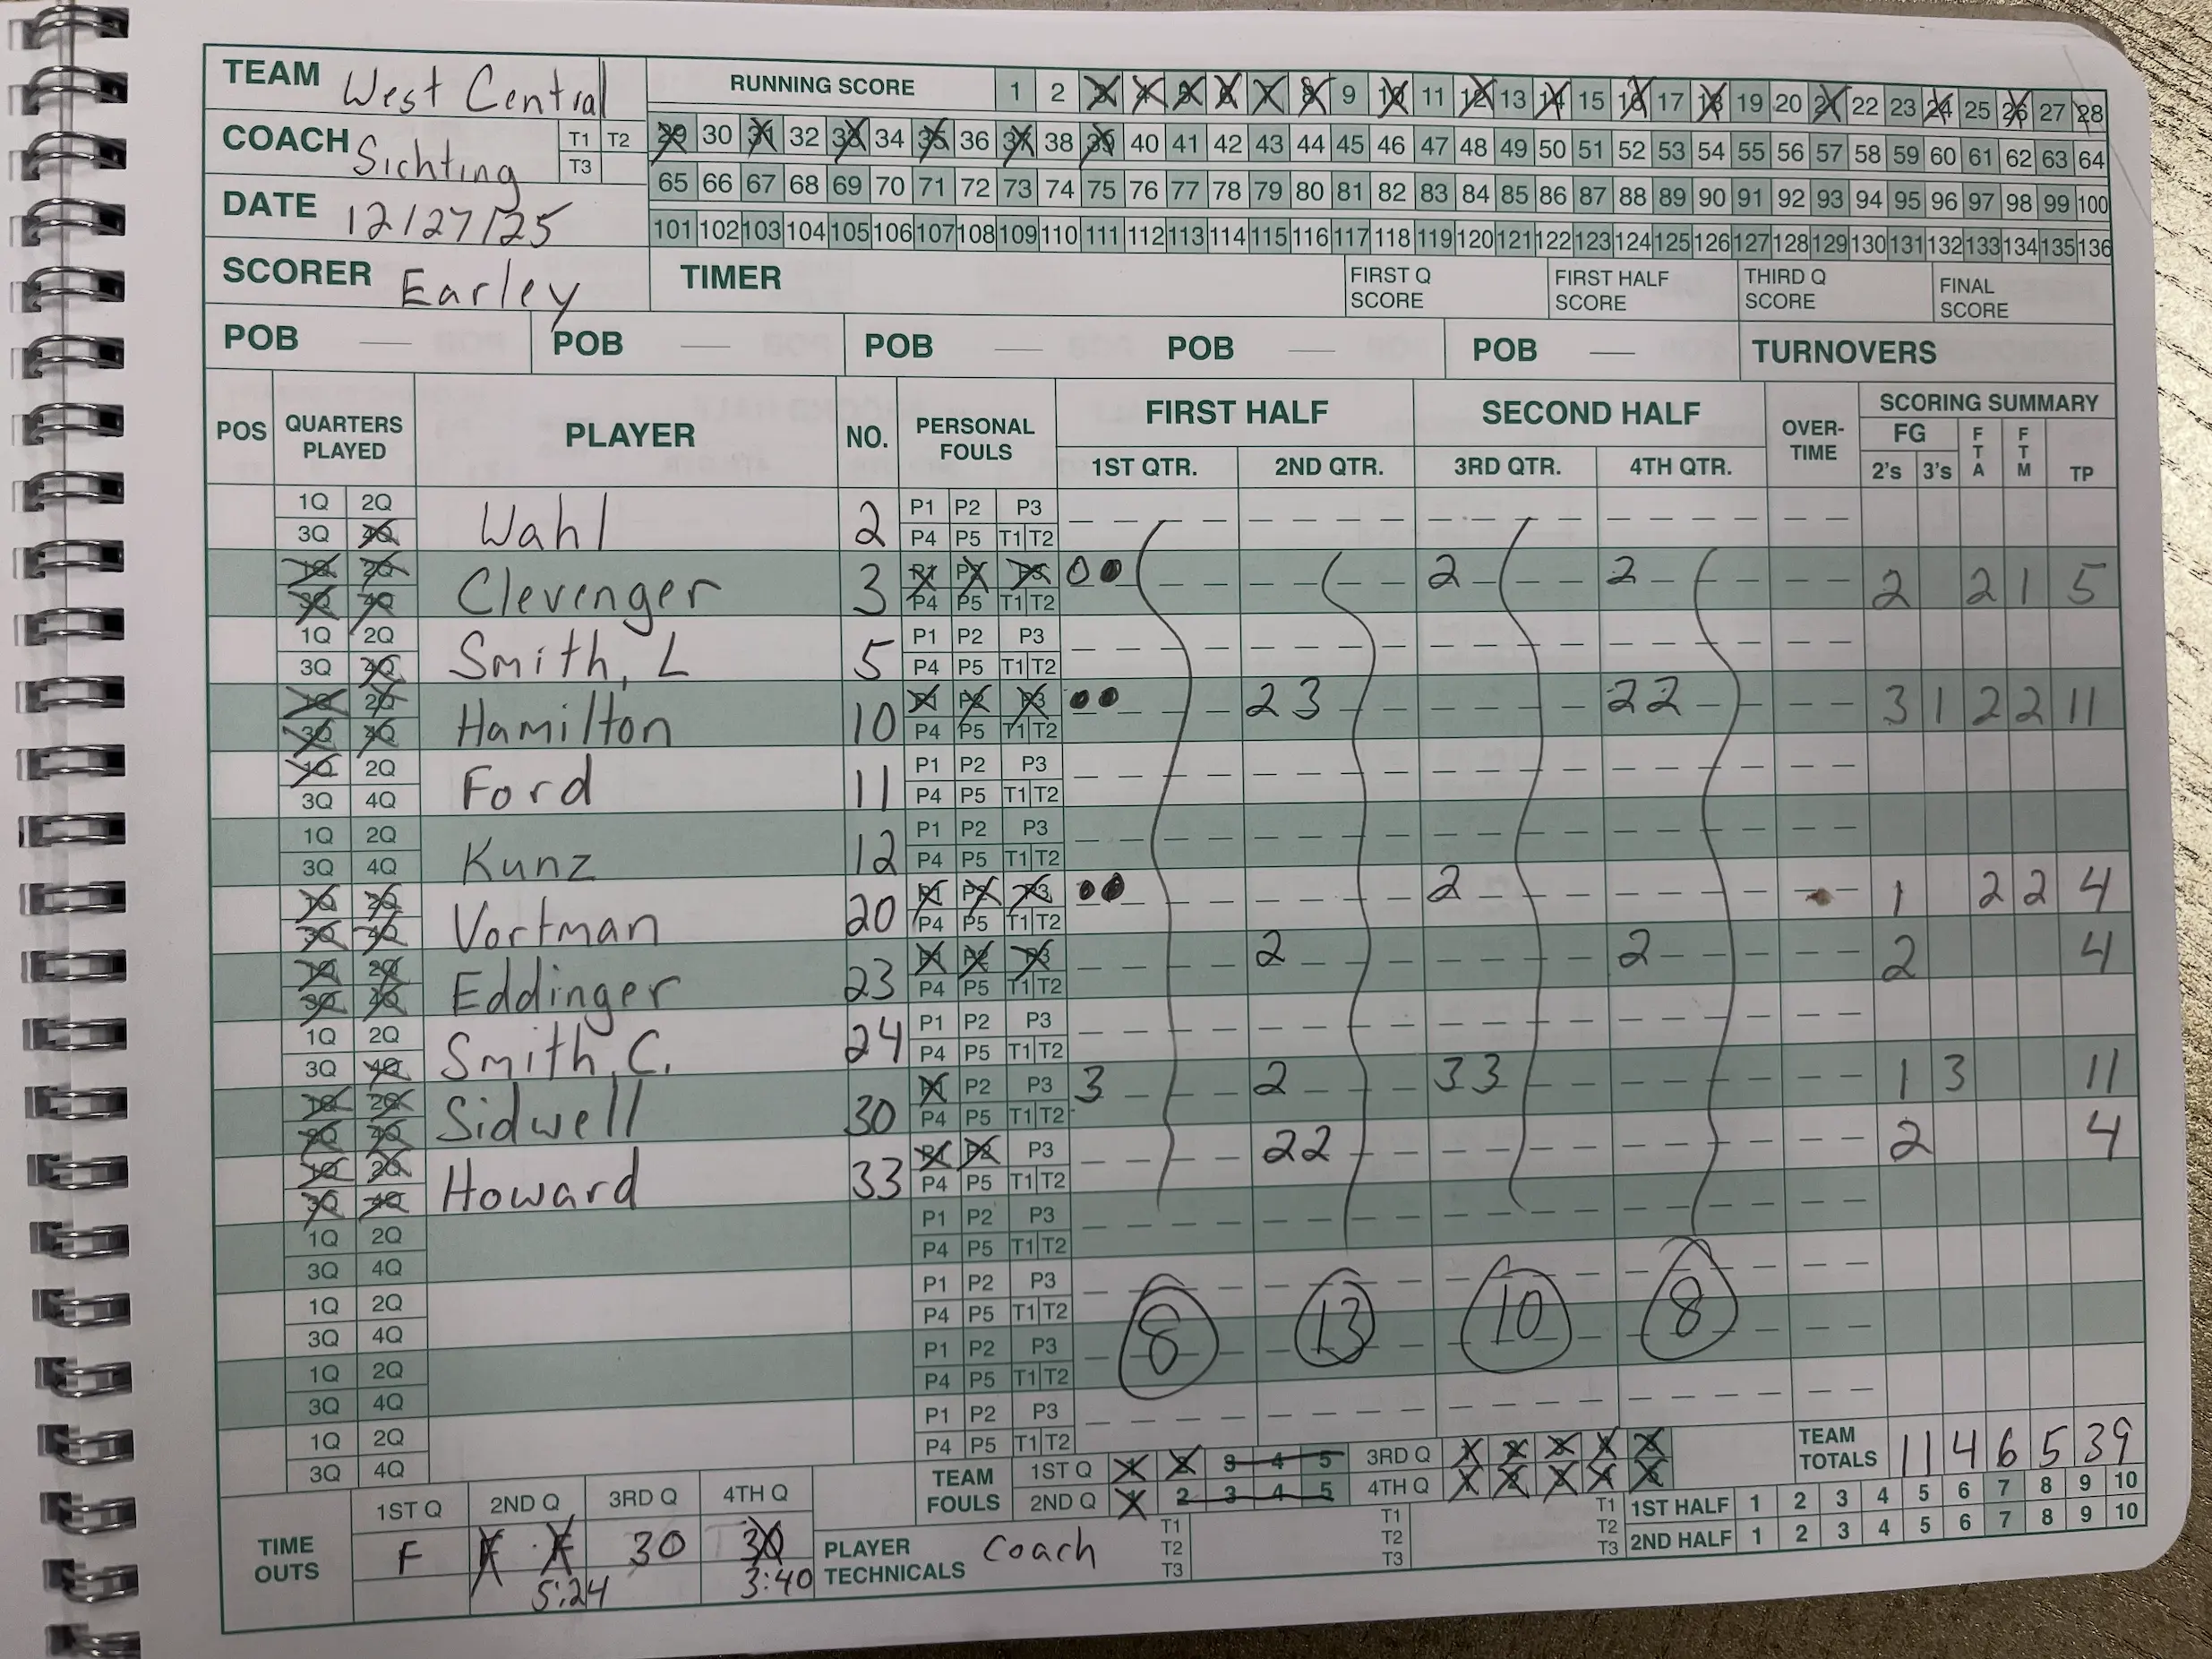 TEAM West Central
RUNNING SCORE 1 2 3 4 5 6 7 8 9 10 11 12 13 14 15 16 17 18 19 20 21 22 23 24 25 26 27 28
COACH Sichting T1 T2 T3
29 30 31 32 33 34 35 36 37 38 39 40 41 42 43 44 45 46 47 48 49 50 51 52 53 54 55 56 57 58 59 60 61 62 63 64
65 66 67 68 69 70 71 72 73 74 75 76 77 78 79 80 81 82 83 84 85 86 87 88 89 90 91 92 93 94 95 96 97 98 99 100
DATE 12/27/25
101 102 103 104 105 106 107 108 109 110 111 112 113 114 115 116 117 118 119 120 121 122 123 124 125 126 127 128 129 130 131 132 133 134 135 136
SCORER Earley TIMER FIRST Q SCORE FIRST HALF SCORE THIRD Q SCORE FINAL SCORE
POB POB POB POB POB TURNOVERS
POS QUARTERS PLAYED PLAYER NO. PERSONAL FOULS FIRST HALF SECOND HALF OVER-TIME SCORING SUMMARY
1ST QTR. 2ND QTR. 3RD QTR. 4TH QTR. FG 2's 3's FTA FTM TP
1Q 2Q P1 P2 P3
3Q 4Q Wahl 2 P4 P5 T1 T2
1Q 2Q P1 P2 P3 0 2 2
3Q 4Q Clevenger 3 P4 P5 T1 T2 2 2 1 5
1Q 2Q P1 P2 P3
3Q 4Q Smith, L 5 P4 P5 T1 T2
1Q 2Q P1 P2 P3 2 3 2 2
3Q 4Q Hamilton 10 P4 P5 T1 T2 3 1 2 2 11
1Q 2Q P1 P2 P3
3Q 4Q Ford 11 P4 P5 T1 T2
1Q 2Q P1 P2 P3
3Q 4Q Kunz 12 P4 P5 T1 T2
1Q 2Q P1 P2 P3 2
3Q 4Q Vortman 20 P4 P5 T1 T2 1 2 2 4
1Q 2Q P1 P2 P3 2 2
3Q 4Q Eddinger 23 P4 P5 T1 T2 2 4
1Q 2Q P1 P2 P3
3Q 4Q Smith, C. 24 P4 P5 T1 T2
1Q 2Q P1 P2 P3 3 2 3 3
3Q 4Q Sidwell 30 P4 P5 T1 T2 1 3 11
1Q 2Q P1 P2 P3 2 2
3Q 4Q Howard 33 P4 P5 T1 T2 2 4
1Q 2Q P1 P2 P3
3Q 4Q P4 P5 T1 T2
1Q 2Q P1 P2 P3
3Q 4Q P4 P5 T1 T2
8 13 10 8
1Q 2Q P1 P2 P3
3Q 4Q P4 P5 T1 T2
1Q 2Q P1 P2 P3
3Q 4Q P4 P5 T1 T2
TEAM FOULS 1ST Q 1 2 3 4 5 3RD Q 1 2 3 4 5 TEAM TOTALS 11 4 6 5 39
2ND Q 1 2 3 4 5 4TH Q 1 2 3 4 5
TIME OUTS 1ST Q 2ND Q 3RD Q 4TH Q
F F F 30 30
5:24 3:40
PLAYER TECHNICALS Coach T1 T2 T3 T1 T2 T3 T1 T2 T3
1ST HALF 1 2 3 4 5 6 7 8 9 10
2ND HALF 1 2 3 4 5 6 7 8 9 10